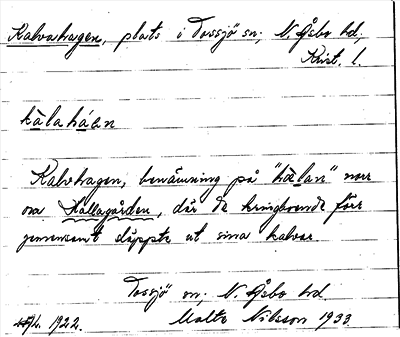 Kalvahagen, plats i Tossjö sn; N. Åsbo hd,
Krist. l.
kālahá̱en
Kalvhagen, benämning på "hælan" norr
om Källagården, där de kringboende förr
gemensamt släppte ut sina kalvar.
Tossjö sn; N. Åsbo hd.
1922. Malte Nilsson 1933.